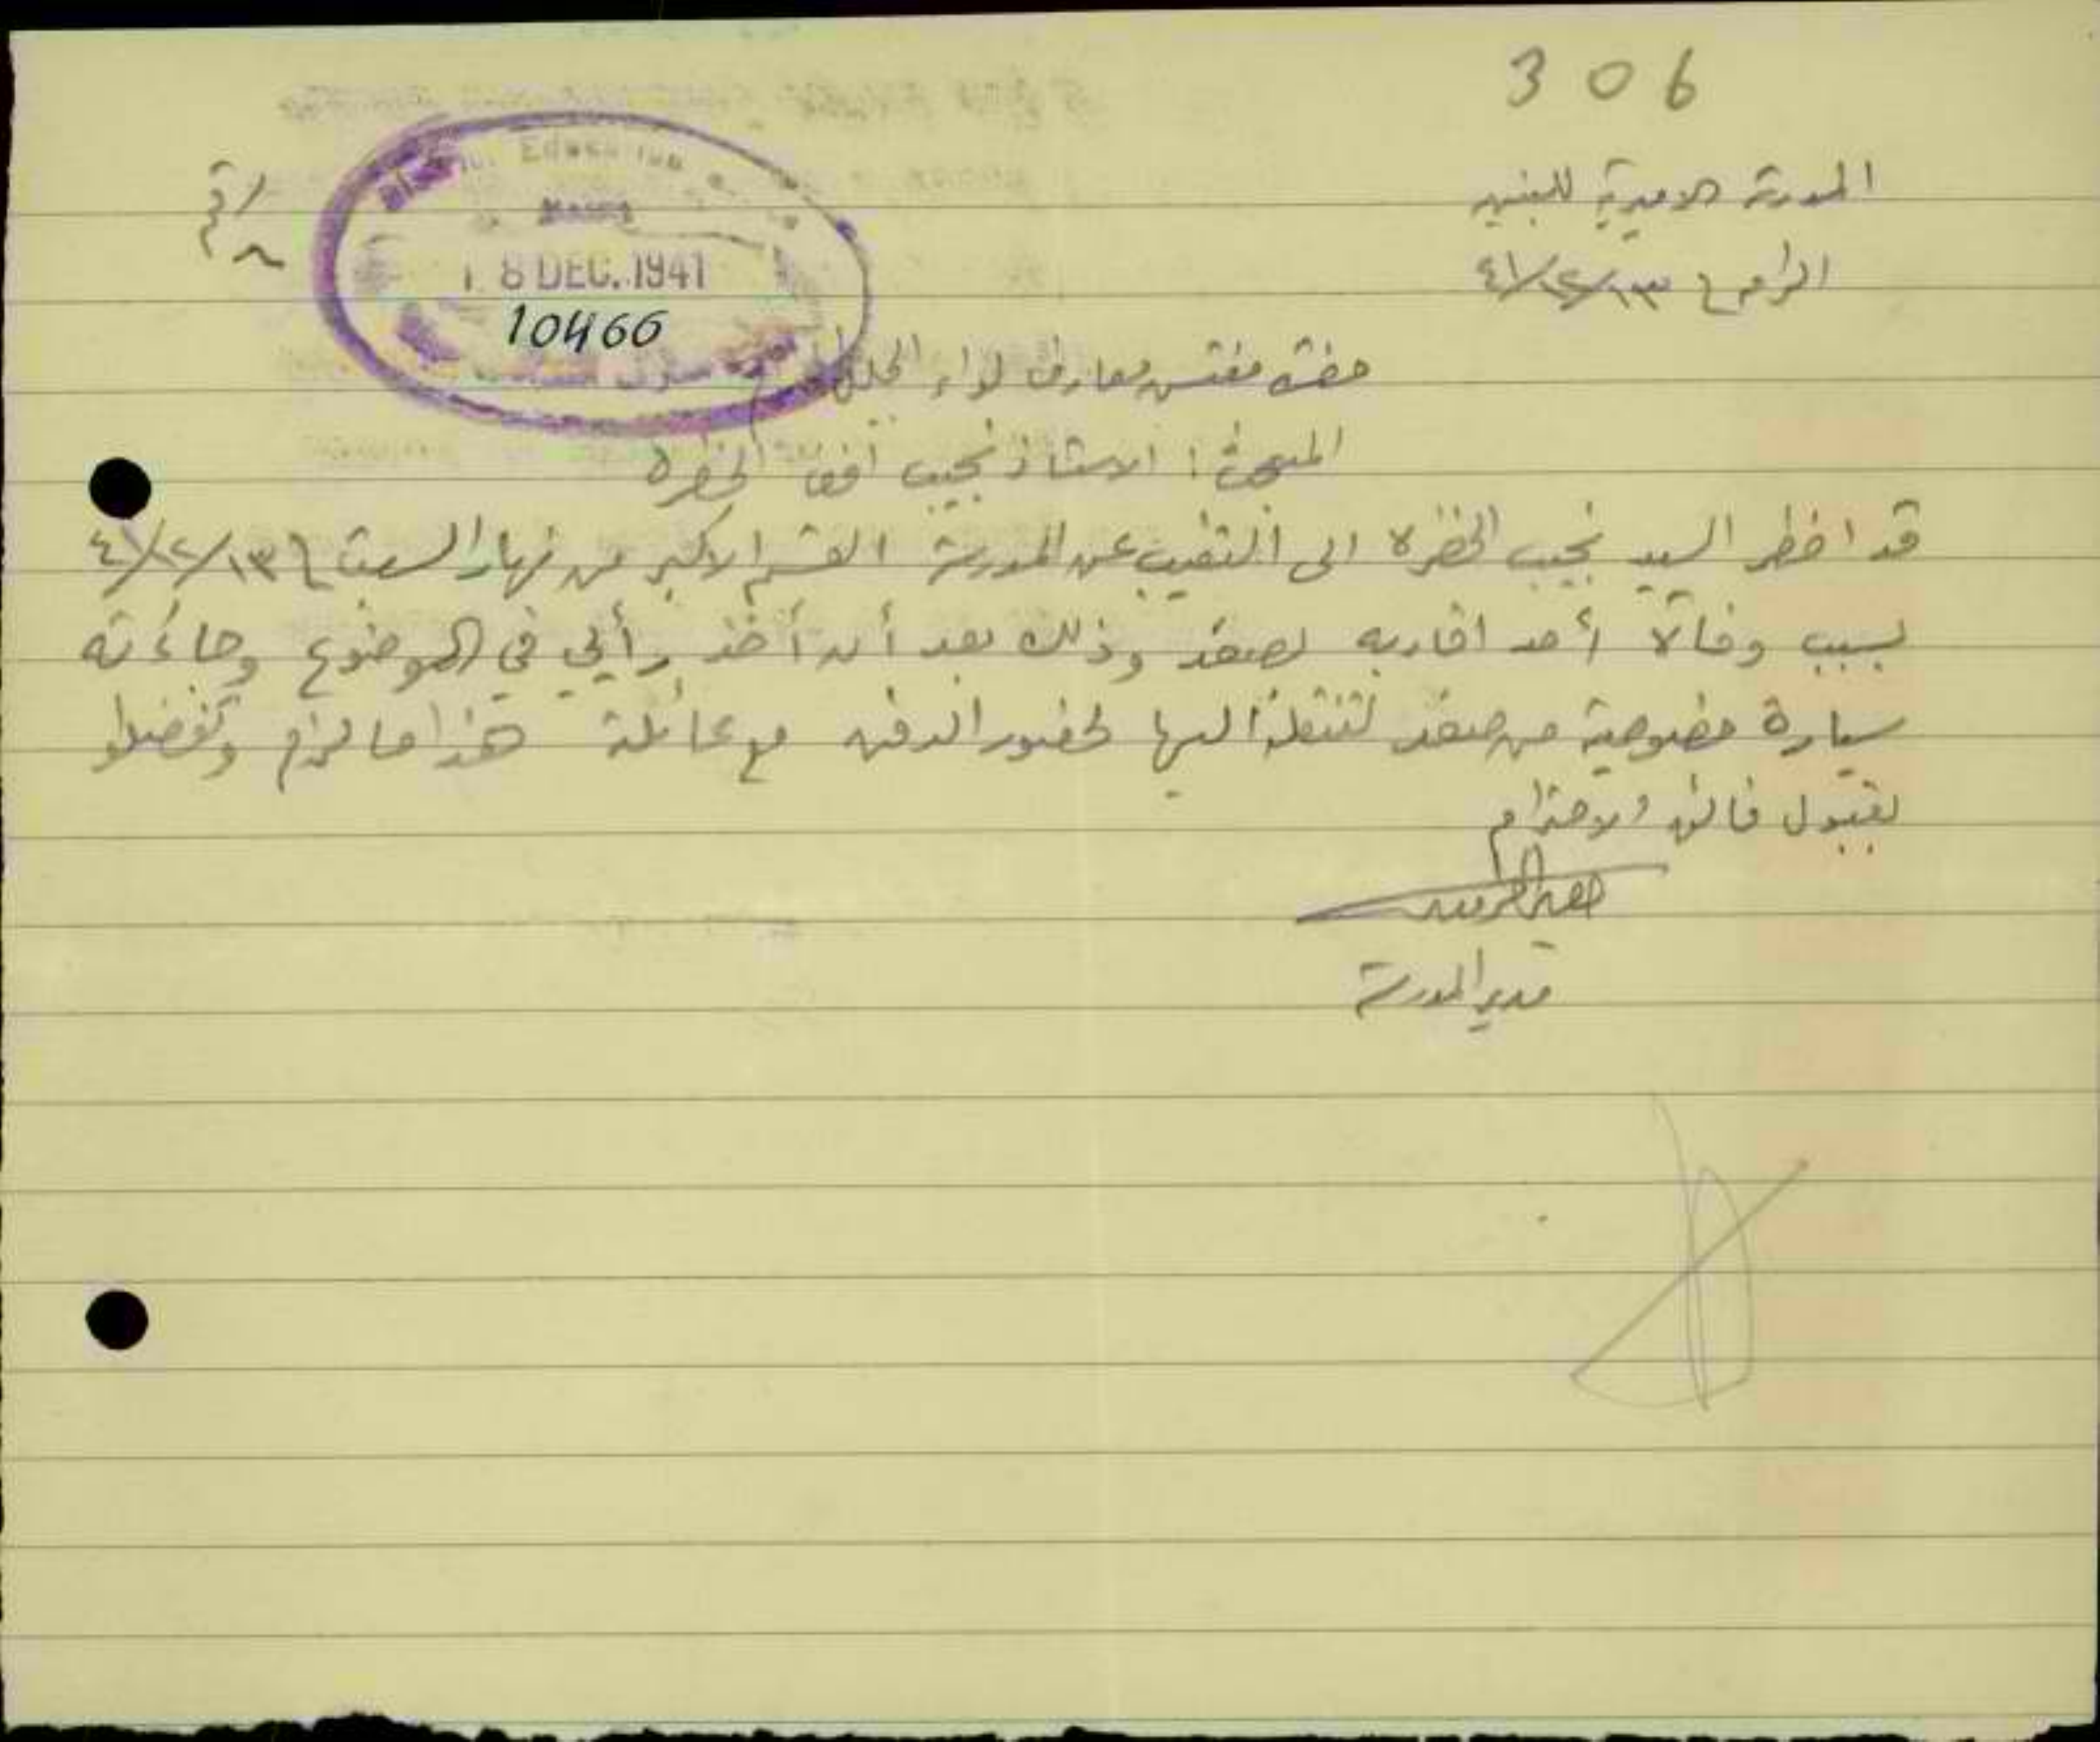 306
المدرسة الاميرية للبنين
الرامه في ١٣/١٢/٤١
Education
18 DEC. 1941
10466
حضرة مفتش معارف لواء الجليل
المبحث: الاستاذ نجيب افندي الخضرة
قد اضطر السيد نجيب الخضرة الى التغيب عن المدرسة القسم الاكبر من نهار السبت في ١٣/١٢/٤١
بسبب وفاة أحد اقاربه بصفد وذلك بعد أن أخذ رأيي في الموضوع وجاءته
سيارة خصوصية من صفد لتنقله اليها لحضور الدفن مع عائلته هذا ما لزم وتفضلوا
بقبول فائق الاحترام
مدير المدرسة